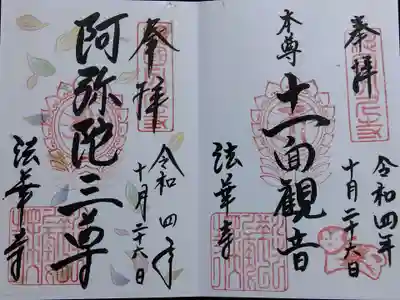 奉拝
本尊 十一面観音
法華寺
令和四年
十月二十六日
奉拝
阿弥陀三尊
法華寺
令和四年
十月二十六日